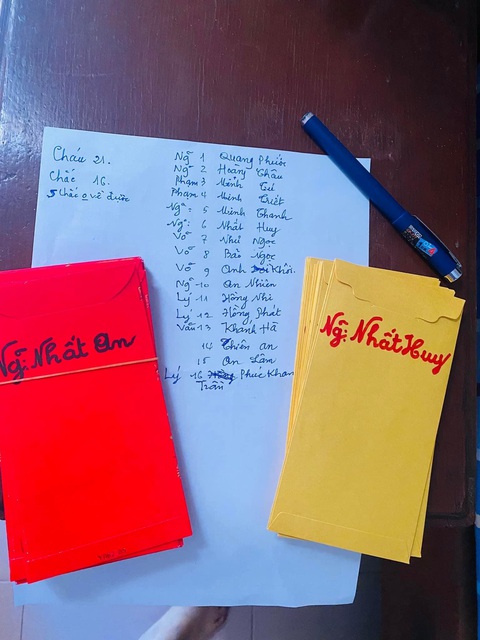 Cháu 21.
Chắc 16.
5 Chắc o về được
Ng̃ 1 Quang Phước
Ng̃ 2 Hoàng Châu
Phạm 3 Minh Tú
Phạm 4 Minh Triết
Ng̃: 5 Minh Thanh
Ng̃: 6 Nhất Huy
Võ 7 Như Ngọc
Võ 8 Bảo Ngọc
Võ 9 Anh Khôi.
Ng̃ 10 An Nhiên
Lý 11 Hồng Nhi
Lý 12 Hồng Phát
Văn 13 Khang Hã
14 Thiên an
15 An Lâm
Lý 16 Phúc Khan
Trần
Ng̃: Nhất An
Ng̃: Nhất Huy